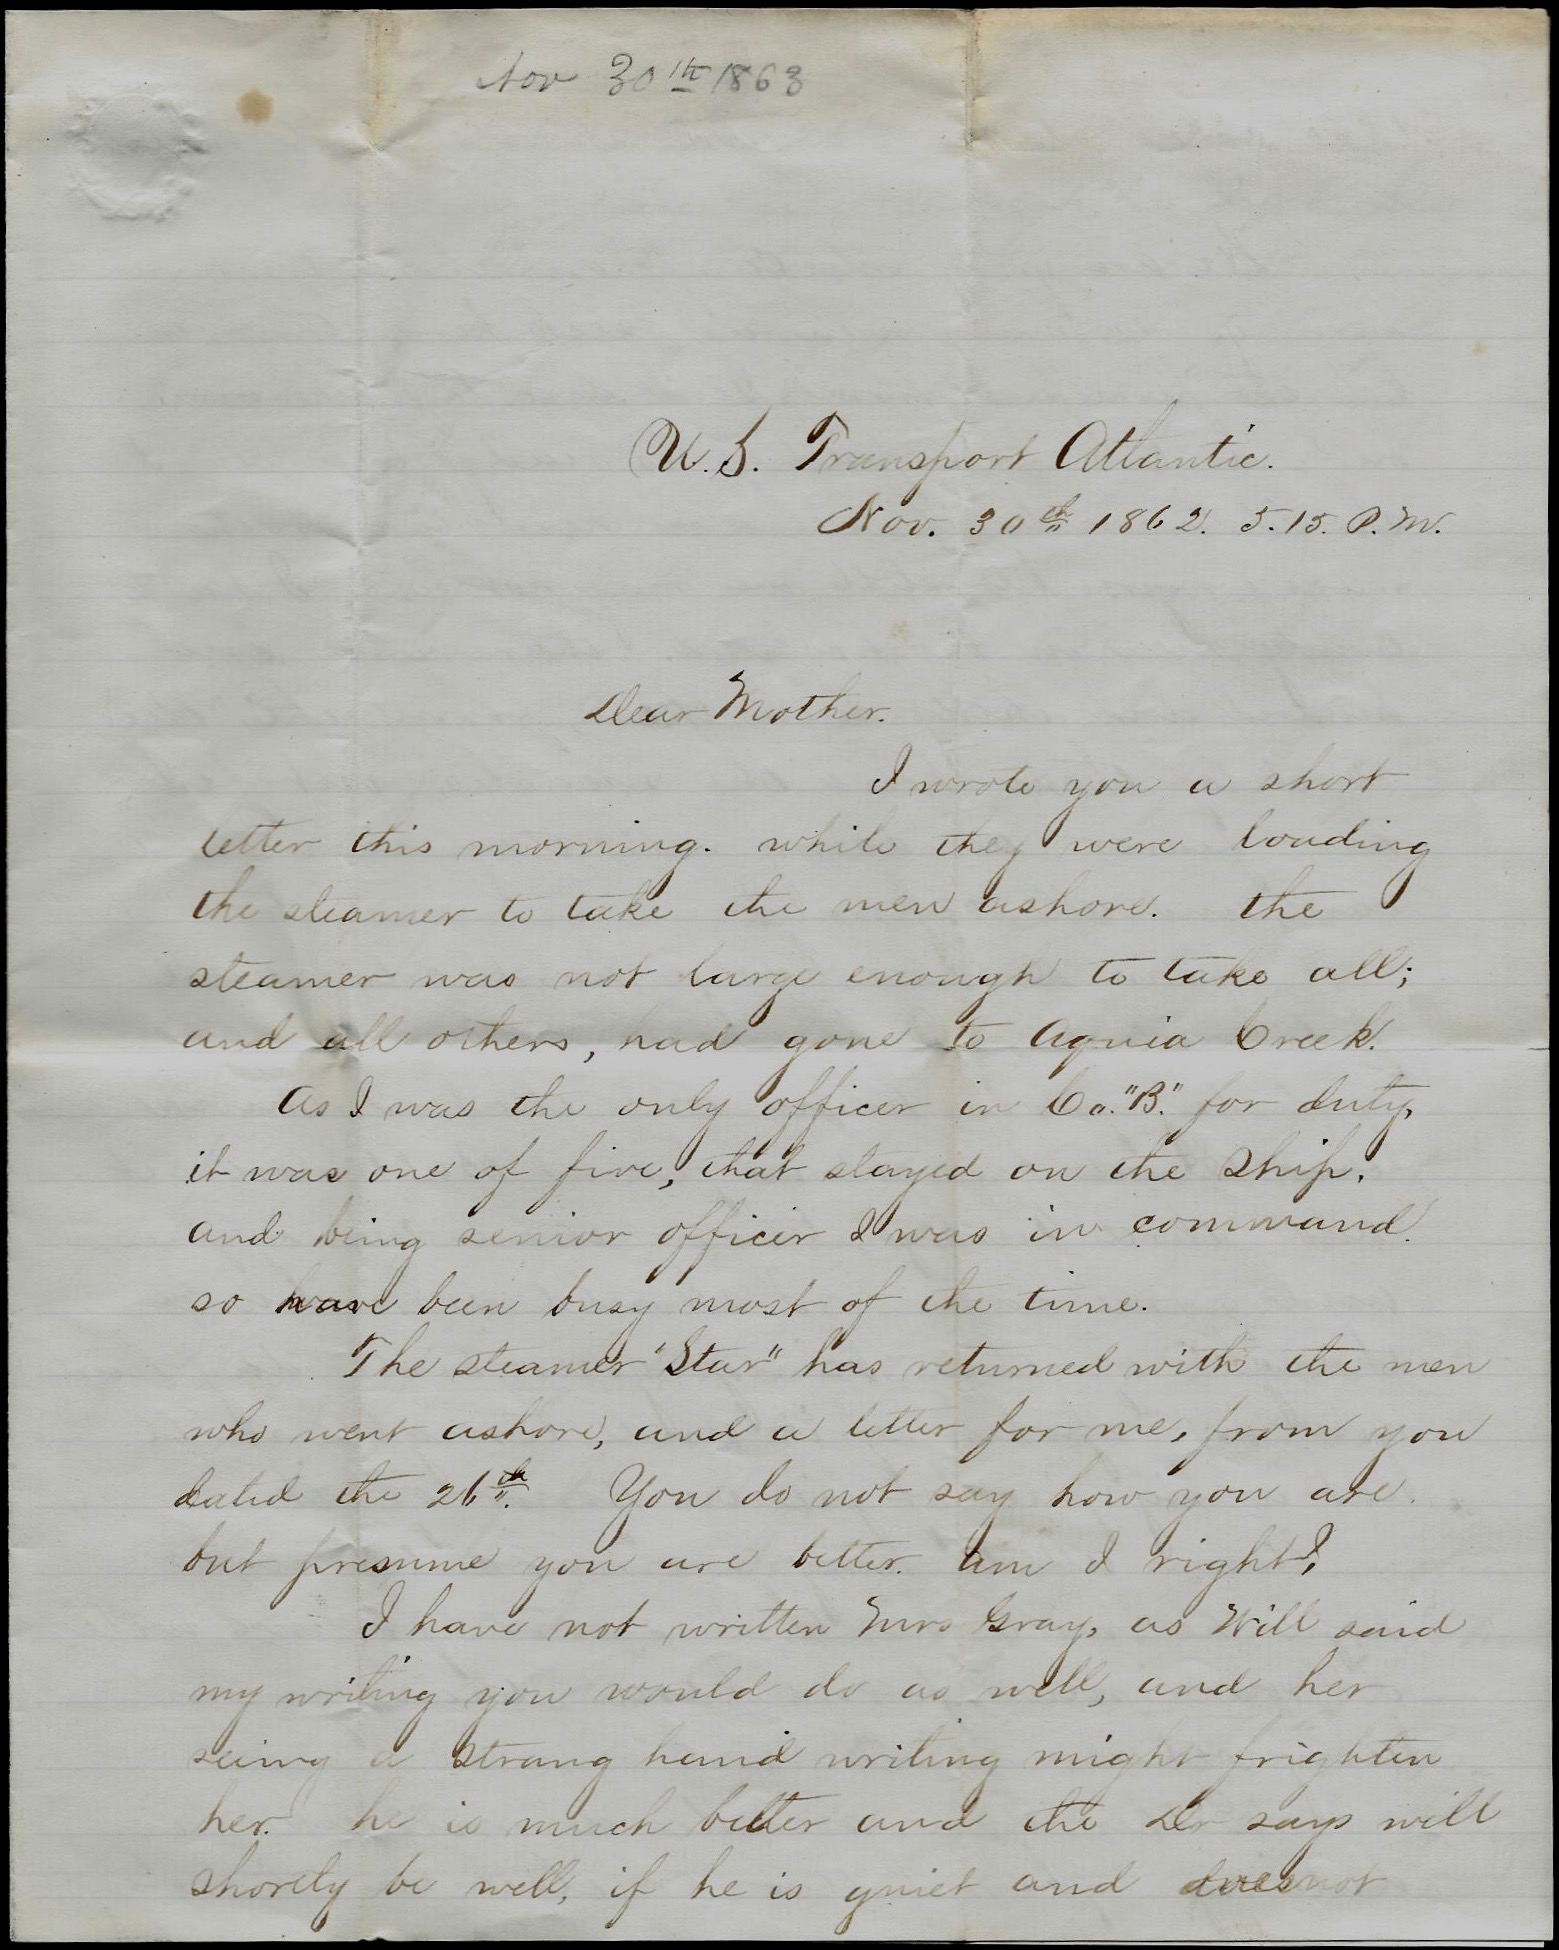 Nov 30th 1863
U.S. Transport Atlantic.
Nov. 30th 1862. 5.15. P.M.
Dear Mother.
I wrote you a short
letter this morning. while they were loading
the steamer to take the men ashore. the
steamer was not large enough to take all;
and all others, had gone to Aquia Creek.
As I was the only officer in Co. "B." for duty,
it was one of five, that stayed on the ship.
and being senior officer I was in command.
so have been busy most of the time.
The steamer "Star" has returned with the men
who went ashore, and a letter for me, from you
dated the 26th. You do not say how you are.
but presume you are better. am I right?
I have not written Mrs Gray, as Will said
my writing you would do as well, and her
seing a strang hand writing might frighten
her. he is much better and the Dr says will
shortly be well, if he is quiet and does not